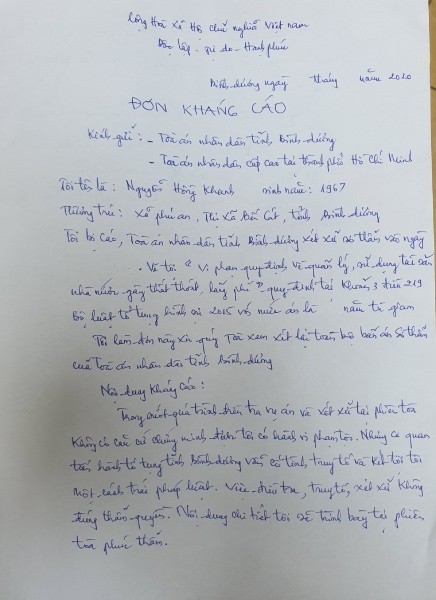 Cộng Hòa Xã Hội Chủ nghĩa Việt nam
Độc lập - Tự do - Hạnh phúc
Bình dương ngày tháng năm 2020
ĐƠN KHÁNG CÁO
Kính gửi : - Tòa án nhân dân tỉnh Bình dương
- Tòa án nhân dân cấp cao tại thành phố Hồ Chí Minh
Tôi tên là : Nguyễn Hồng Khanh sinh năm : 1967
Thường trú : Xã phú an, Thị Xã Bến Cát, tỉnh Bình dương
Tôi bị cáo, Tòa án nhân dân tỉnh Bình dương xét xử sơ thẩm vào ngày
. Về tội " Vi phạm quy định về quản lý, sử dụng tài sản
nhà nước gây thất thoát, lãng phí " quy định tại Khoản 3 điều 219
Bộ luật tố tụng hình sự 2015 với mức án là năm tù giam
Tôi làm đơn này xin quý Tòa xem xét lại toàn bộ bản án sơ thẩm
của Tòa án nhân dân tỉnh Bình dương
Nội dung kháng cáo :
Trong suốt quá trình điều tra vụ án và xét xử tại phiên tòa
không có căn cứ chứng minh được tôi có hành vi phạm tội. Nhưng cơ quan
tiến hành tố tụng tỉnh Bình dương vẫn cố tình truy tố và kết tội tôi
một cách trái pháp luật. Việc điều tra, truy tố, xét xử không
đúng thẩm quyền. Nội dung chi tiết tôi sẽ trình bày tại phiên
tòa phúc thẩm.